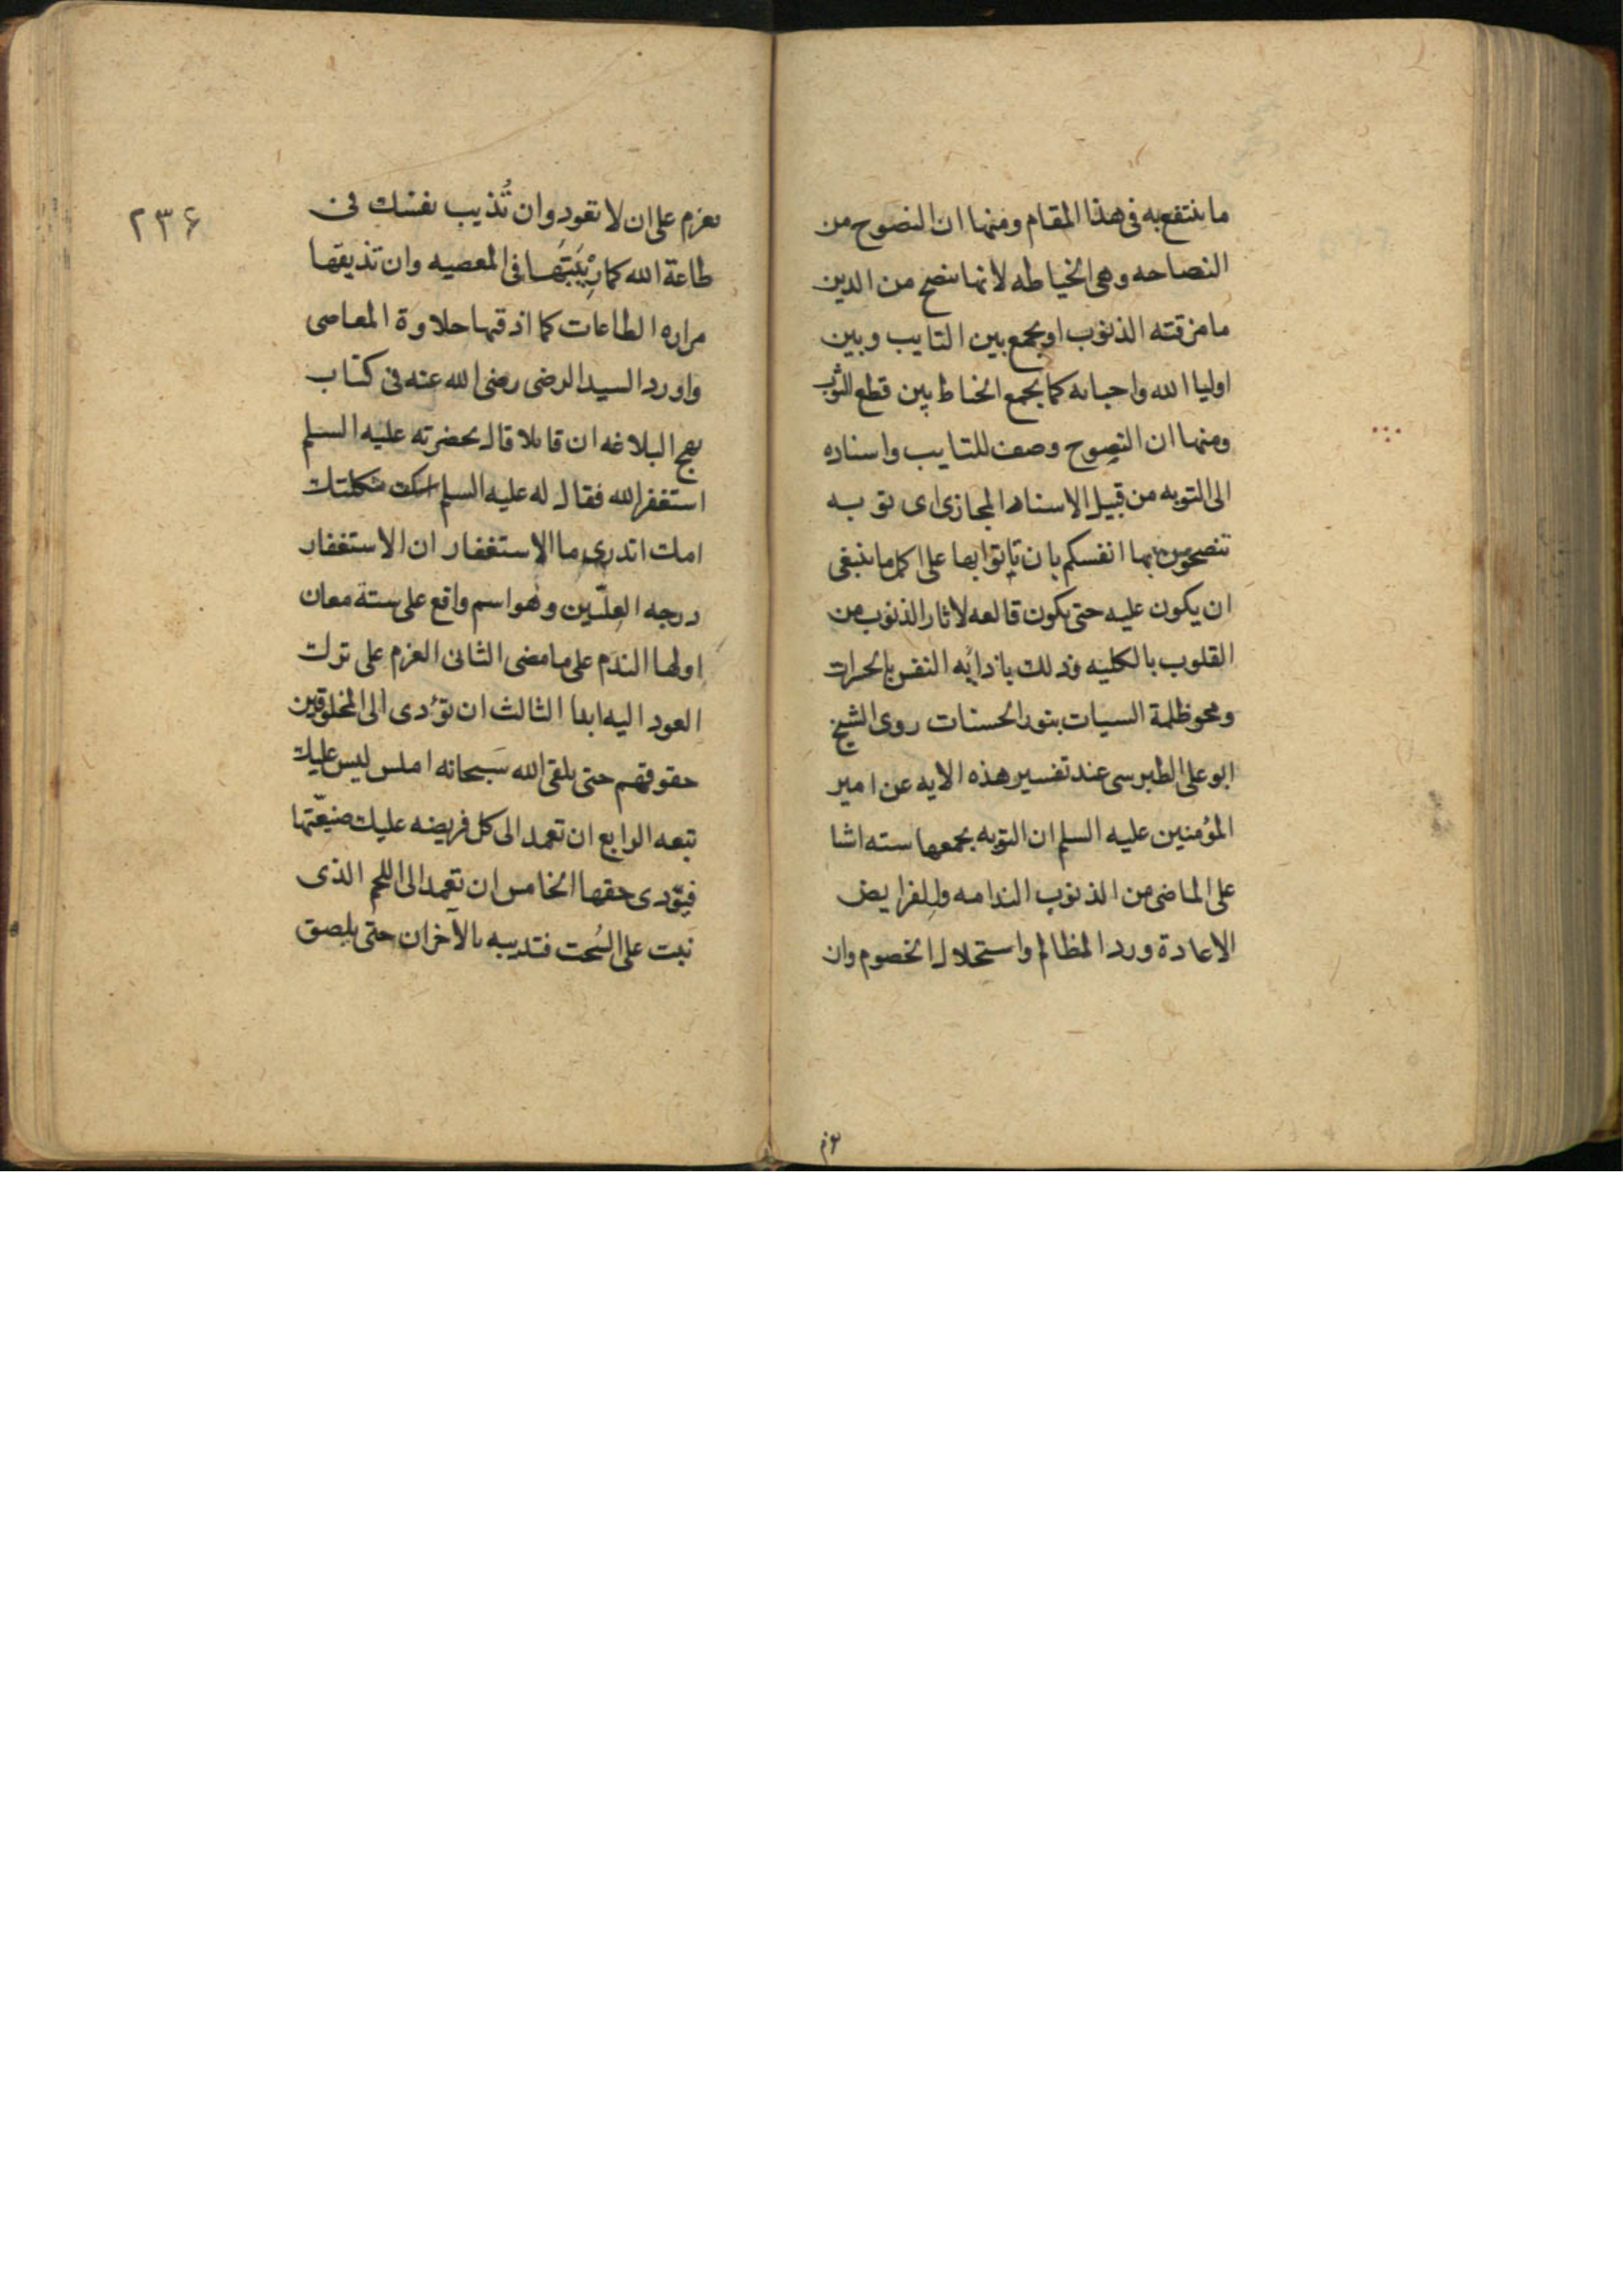 ما ينتفع به فى هذا المقام ومنها ان النصوح من
النصاحه وهى الخياطه لانها تنصح من الدين
ما مزقته الذنوب او يجمع بين التايب وبين
اوليا الله واحبائه كما يجمع الخياط بين قطع الثوب
ومنها ان النصوح وصف للتايب واسناده
الى التوبه من قبيل الاسناد المجازى اى توبه
تنصحون بها انفسكم بان تاتوا بها على اكمل ما ينبغى
ان يكون عليه حتى يكون قالعه لاثار الذنوب من
القلوب بالكليه وذلك باذابه النفس بالحسرات
ومحو ظلمة السيات بنور الحسنات روى الشيخ
ابو على الطبرسى عند تفسير هذه الايه عن امير
المؤمنين عليه السلم ان التوبه يجمعها سته اشيا
على الماضى من الذنوب الندامه وللفرايض
الاعادة ورد المظالم واستحلال الخصوم وان
تعزم على ان لا تعود وان تُذيب نفسك فى
طاعة الله كما رَبَّيْتَها فى المعصيه وان تذيقها
مراره الطاعات كما اذقتها حلاوة المعاصى
واورد السيد الرضى رضى الله عنه فى كتاب
نهج البلاغه ان قائلا قال بحضرته عليه السلم
استغفر الله فقال له عليه السلم ثكلتك
امك اتدرى ما الاستغفار ان الاستغفار
درجه العِلّيين وهو اسم واقع على ستة معان
اولها الندم على ما مضى الثانى العزم على ترك
العود اليه ابدا الثالث ان تؤدى الى المخلوقين
حقوقهم حتى تلقى الله سبحانه املس ليس عليك
تبعه الرابع ان تعمد الى كل فريضه عليك ضيّعتها
فتؤدى حقها الخامس ان تعمد الى اللحم الذى
نبت على السُحت فتذيبه بالاحزان حتى يلصق
٢٣۶